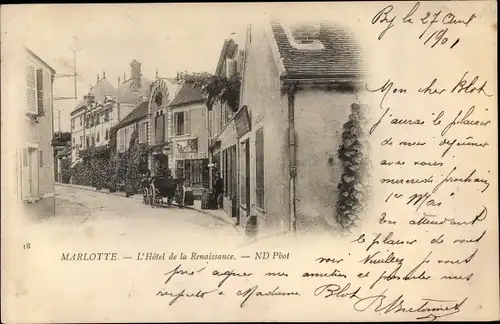 By le 27 Avril
1901
Mon cher Blot
j'aurai le plaisir
de déjeuner
avec vous
mercredi prochain
1er Mai
en attendant
le plaisir de vous
voir Veuillez je vous
prie agréer mes amitiés et présenter mes
respects à Madame Blot
18
MARLOTTE. — L'Hôtel de la Renaissance. — ND Phot